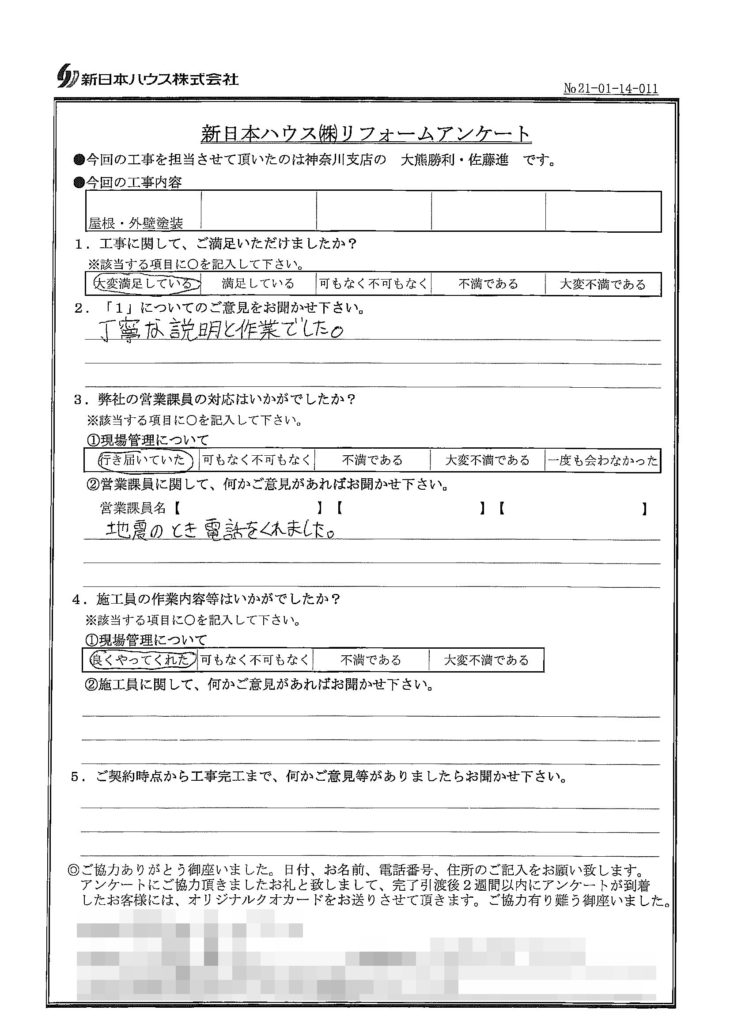 新日本ハウス株式会社
No21-01-14-011
新日本ハウス㈱リフォームアンケート
●今回の工事を担当させて頂いたのは神奈川支店の 大熊勝利・佐藤進 です。
●今回の工事内容
屋根・外壁塗装
1．工事に関して、ご満足いただけましたか？
※該当する項目に○を記入して下さい。
大変満足している 満足している 可もなく不可もなく 不満である 大変不満である
2．「1」についてのご意見をお聞かせ下さい。
丁寧な説明と作業でした。
3．弊社の営業課員の対応はいかがでしたか？
※該当する項目に○を記入して下さい。
①現場管理について
行き届いていた 可もなく不可もなく 不満である 大変不満である 一度も会わなかった
②営業課員に関して、何かご意見があればお聞かせ下さい。
営業課員名【 】【 】【 】
地震のとき電話をくれました。
4．施工員の作業内容等はいかがでしたか？
※該当する項目に○を記入して下さい。
①現場管理について
良くやってくれた 可もなく不可もなく 不満である 大変不満である
②施工員に関して、何かご意見があればお聞かせ下さい。
5．ご契約時点から工事完工まで、何かご意見等がありましたらお聞かせ下さい。
◎ご協力ありがとう御座いました。日付、お名前、電話番号、住所のご記入をお願い致します。
アンケートにご協力頂きましたお礼と致しまして、完了引渡後２週間以内にアンケートが到着
したお客様には、オリジナルクオカードをお送りさせて頂きます。ご協力有り難う御座いました。